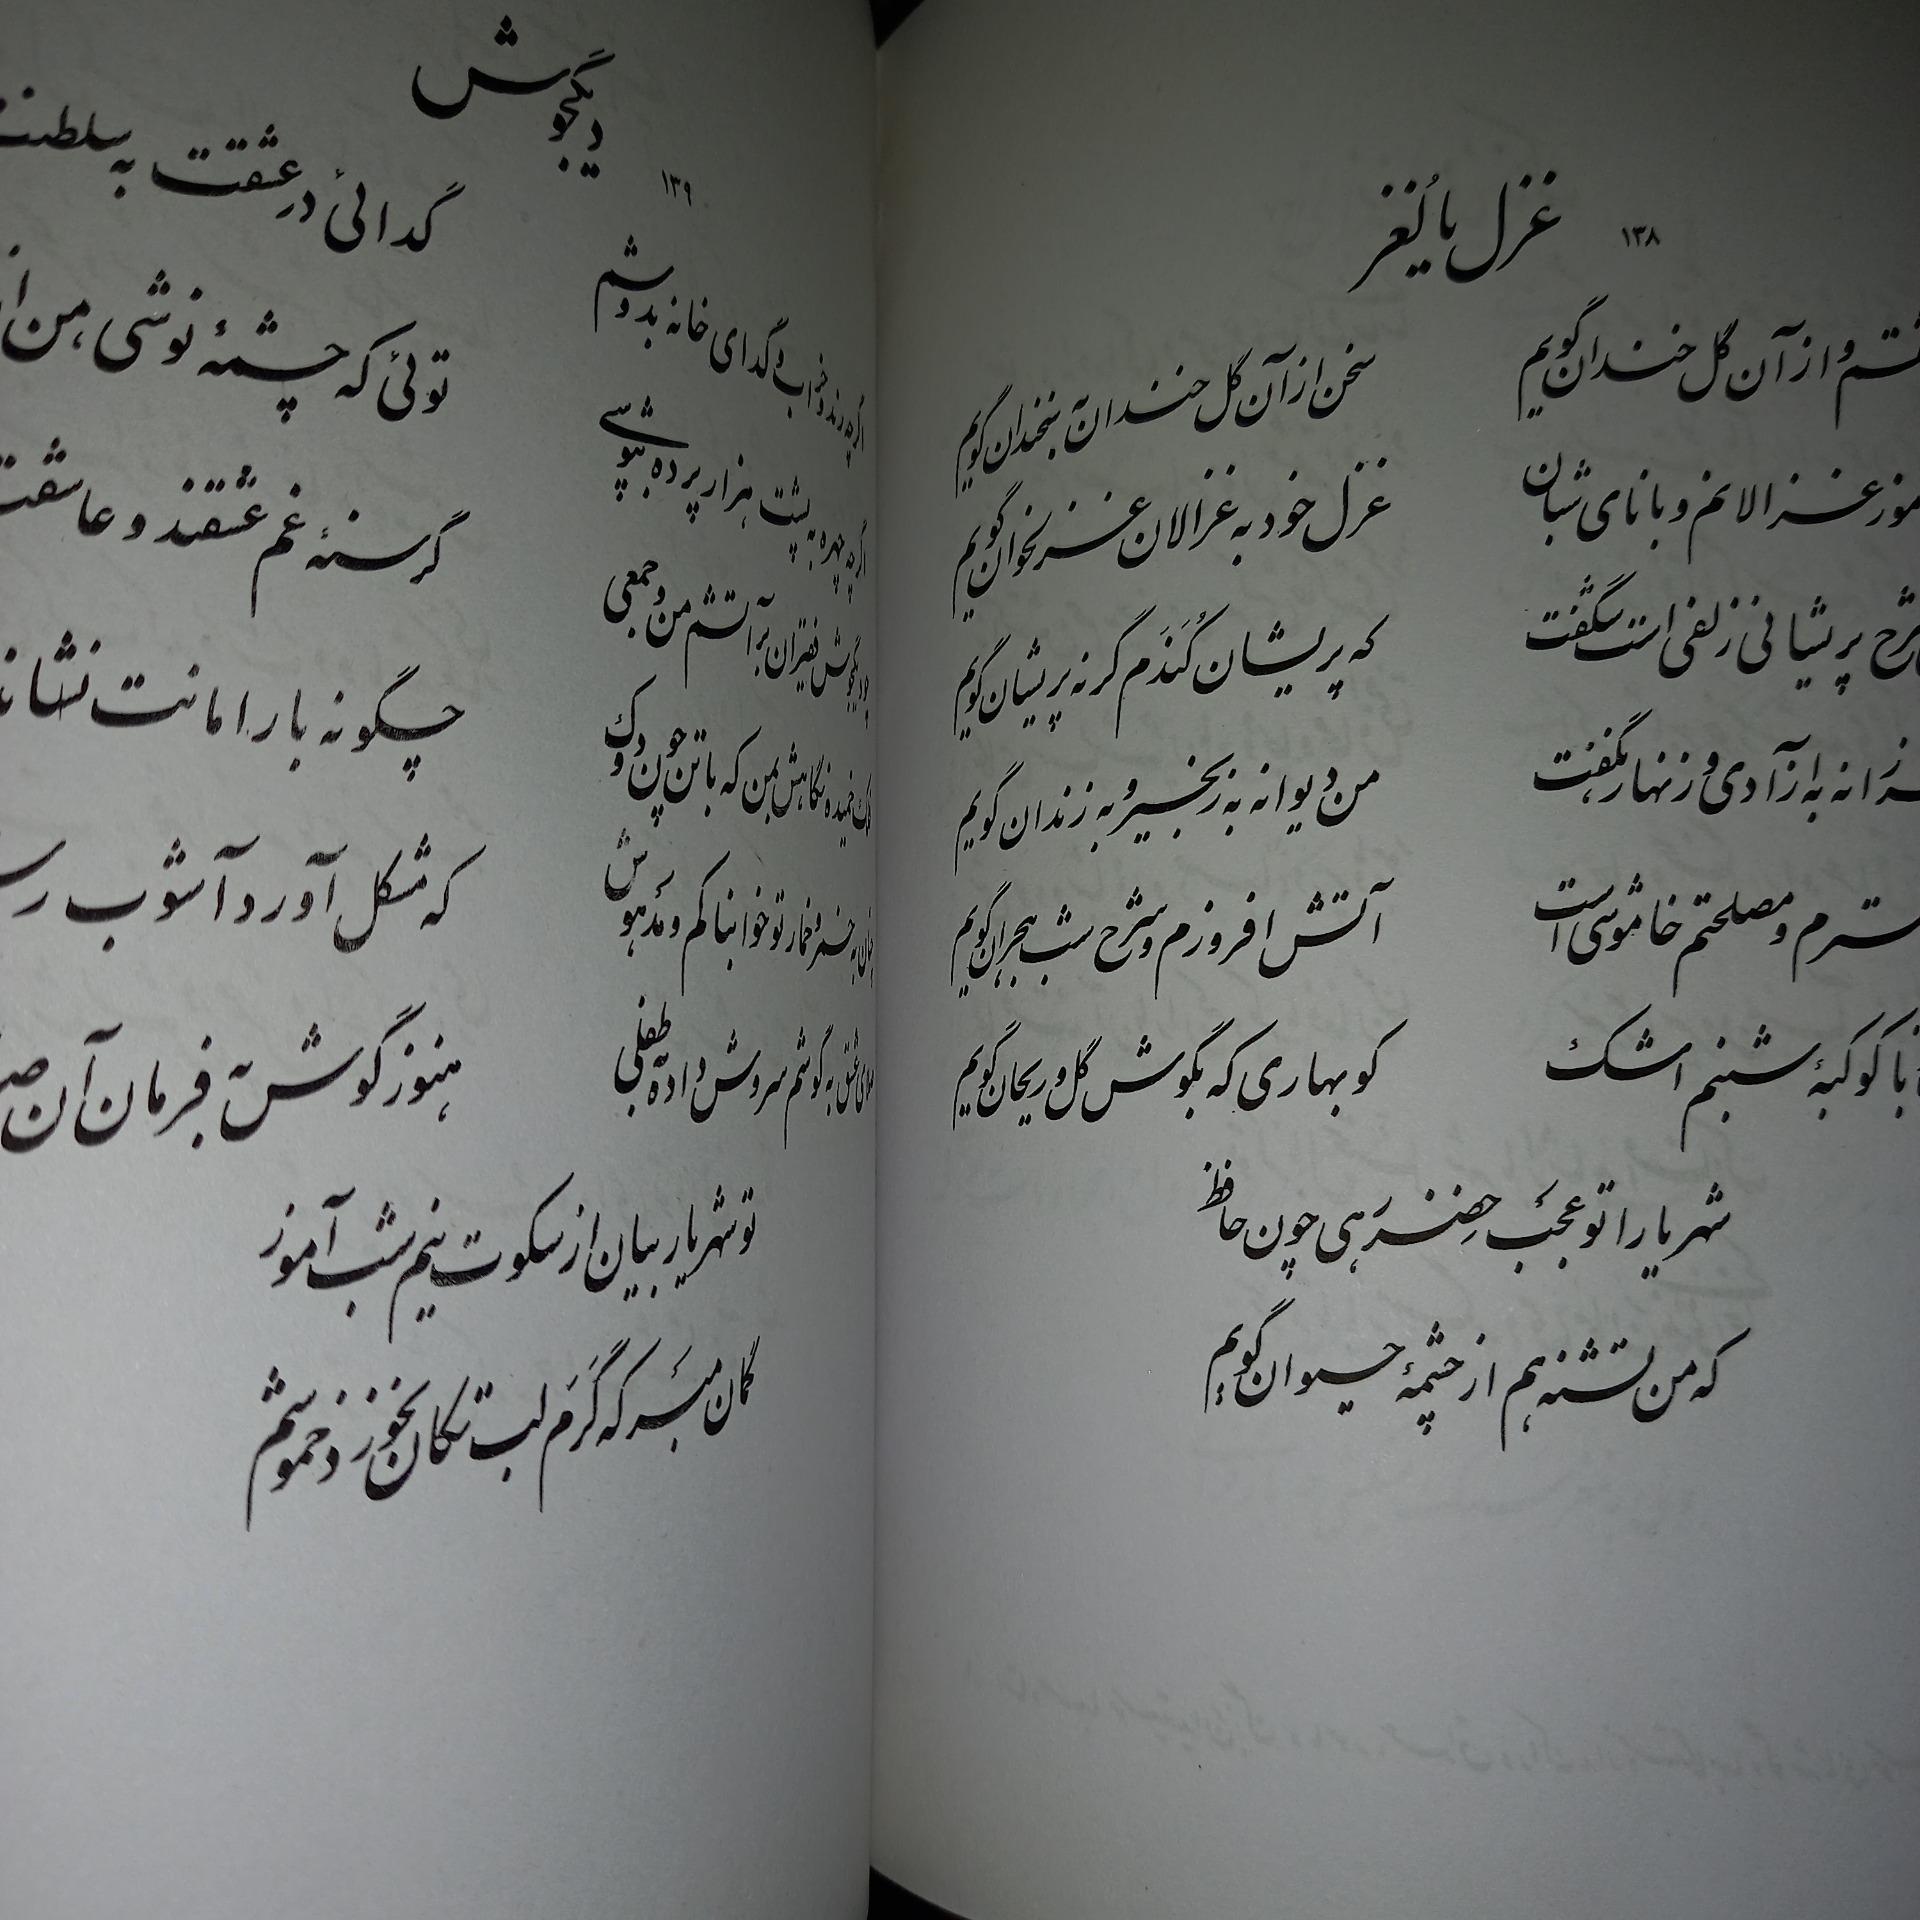 غزل یا لُغز ۱۳۸
و از آن گل خندان گویم
سخن از آن گل خندان به سخندان گویم
غزالانم و با نای شبان
غزل خود به غزالان غزلخوان گویم
شرح پریشانی زلفی است شگفت
که پریشان کُنَدَم گر نه پریشان گویم
به آزادی و زنهار نگفت
من دیوانه به زنجیر و به زندان گویم
و مصلحتم خاموشی است
آتش افروزم و شرح شب هجران گویم
با کوکبهٔ شبنم اشک
کو بهاری که بگوش گل و ریحان گویم
شهریارا تو عجب خضر رَهی چون حافظ
که من تشنه هم از چشمهٔ حیوان گویم
دیگجوش ۱۳۹
اگرچه رند و خراب و گدای خانه بدوشم
گدائی در عشقت به سلطنت
اگرچه چهره به پشت هزار پرده بپوشی
توئی که چشمهٔ نوشی من
چو دیگجوش فقیران بر آتشم من و جمعی
گرسنهٔ غم عشقند و عاشقت
فلک خمیده نگاهش بمن که با تن چون دوک
چگونه بار امانت نشانده
چنان به خمر و خمار تو خوابناکم و مدهوش
که مشکل آورد آشوب
صلای عشق به گوشم سروش داده به طفلی
هنوز گوش به فرمان آن
تو شهریار بیان از سکوت نیم شب آموز
گمان مبر که گَرَم لب تکان نخورد خموشم